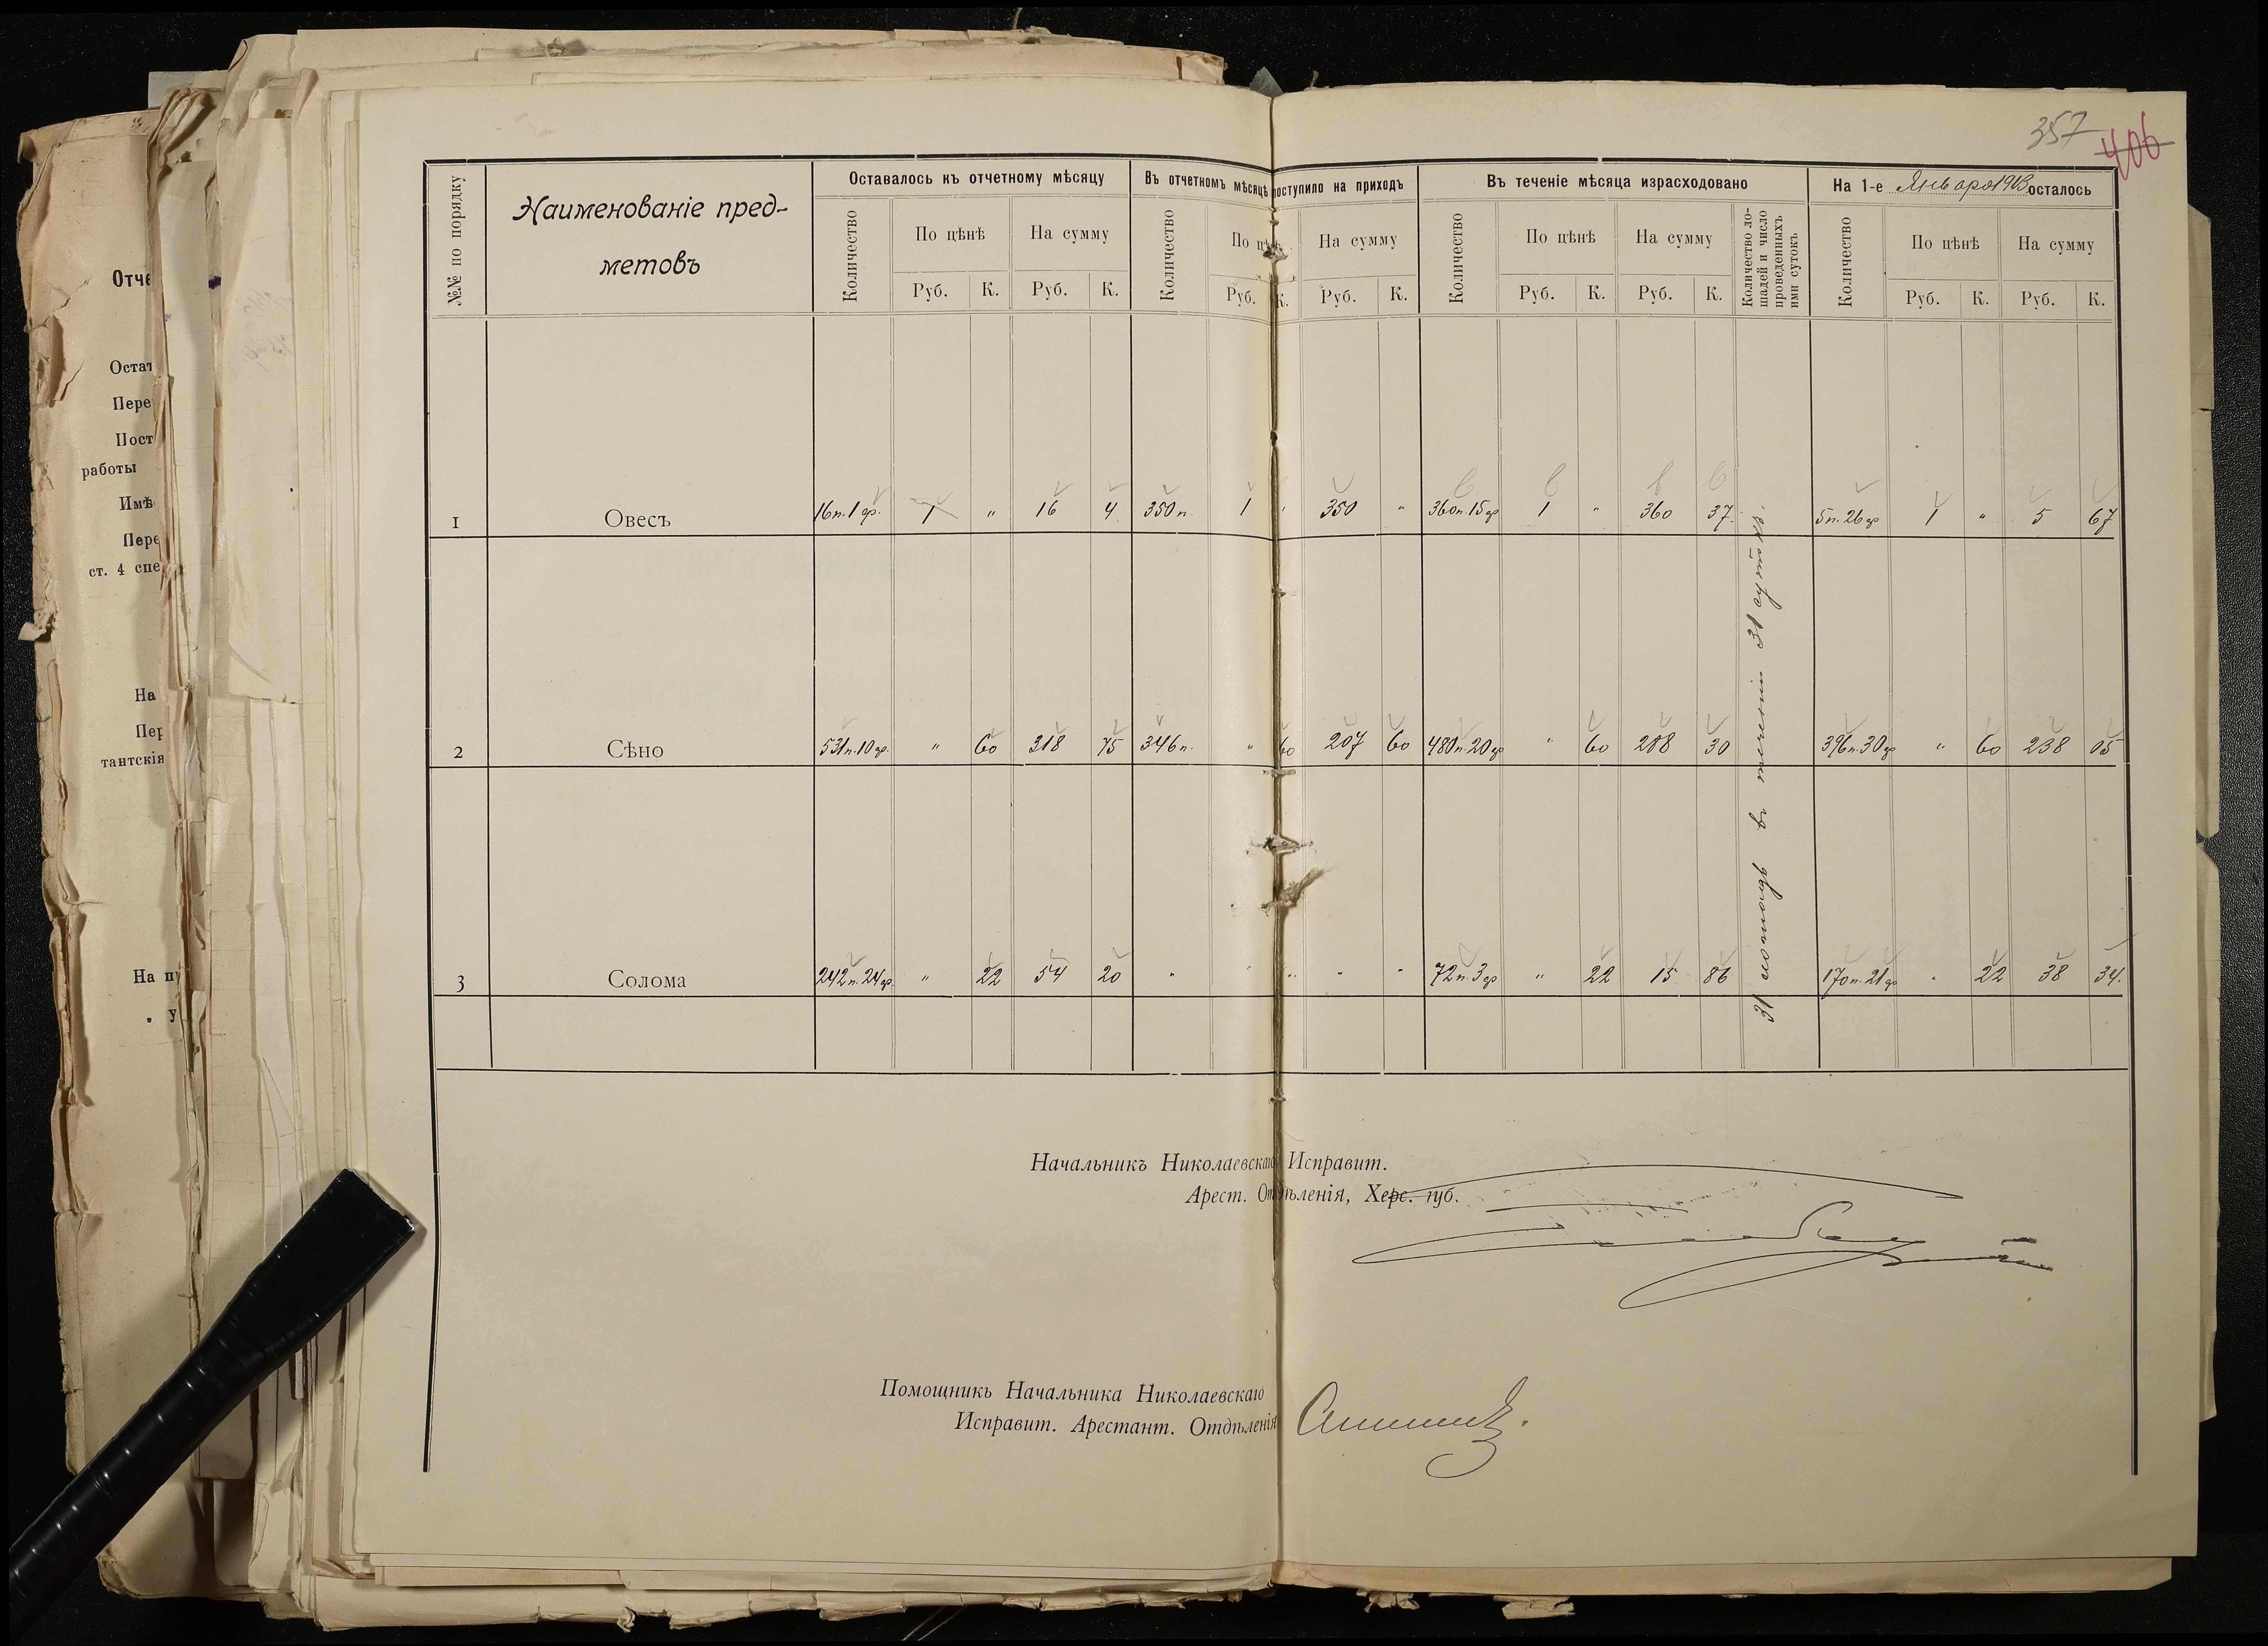 357
406
Отче
Остат
Пере
Пост
работы
Имѣ
Пере
ст. 4 спе
На
Пер
тантскія
На п
№№ по порядку
Наименованіе пред-
метовъ
Оставалось къ отчетному мѣсяцу
Количество
По цѣнѣ
На сумму
Руб. К. Руб. К.
Въ отчетномъ мѣсяцѣ поступило на приходъ
Количество
По цѣнѣ
На сумму
Руб. К. Руб. К.
Въ теченіе мѣсяца израсходовано
Количество
По цѣнѣ
На сумму
Руб. К. Руб. К.
Количество ло-
шадей и число
проведенныхъ
ими сутокъ
На 1-е Января 1913 осталось
Количество
По цѣнѣ
На сумму
Руб. К. Руб. К.
1 Овесъ 16п. 1ф. 1 " 16 4 350п. 1 " 350 " 360п. 15ф 1 " 360 37. 5п. 26ф 1 " 5 67
2 Сѣно 531п. 10ф. " 60 318 75 346п. " 60 207 60 480п. 20ф " 60 288 30 396п. 30ф " 60 238 05
3 Солома 242п. 24ф. " 22 54 20 " " " " " 72п. 3ф " 22 15 86 170п. 21ф " 22 38 34.
31 лошадь въ теченіи 31 сутокъ.
Начальникъ Николаевскаго Исправит.
Арест. Отдѣленія, Херс. губ.
Помощникъ Начальника Николаевскаго
Исправит. Арестант. Отдѣленія